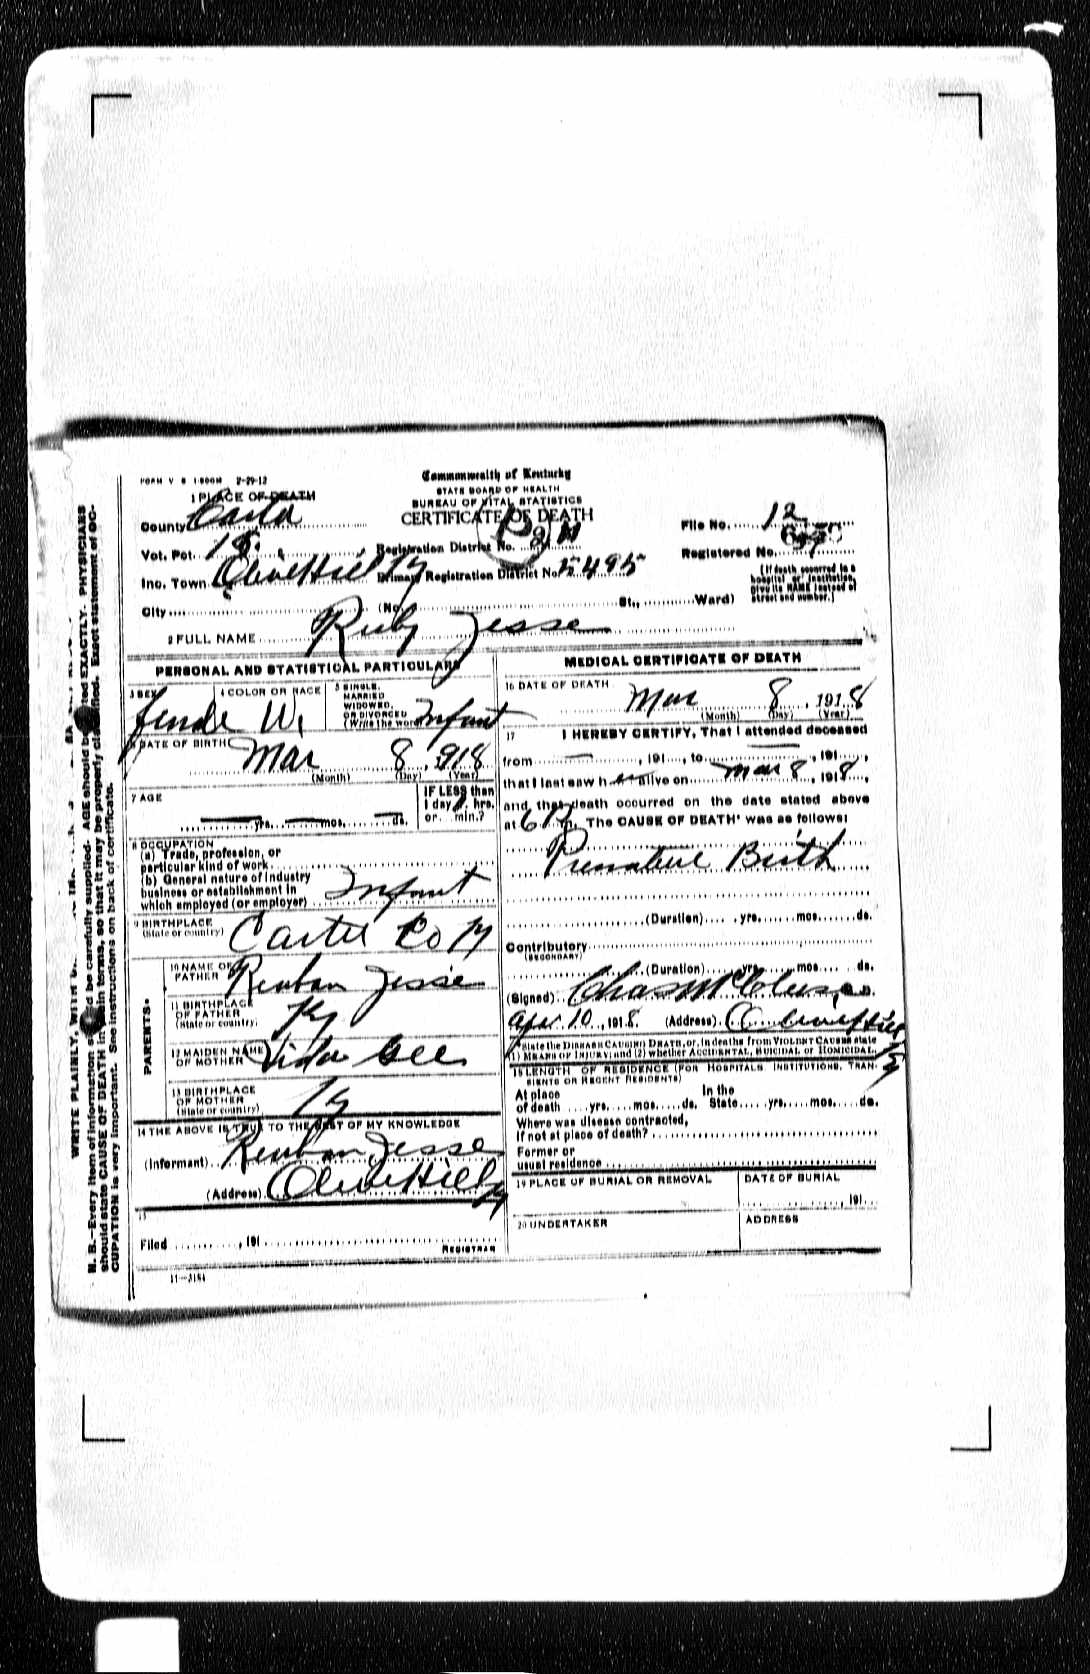 FORM V S 1-500M 2-29-12
Commonwealth of Kentucky
STATE BOARD OF HEALTH
BUREAU OF VITAL STATISTICS
CERTIFICATE OF DEATH
1 PLACE OF DEATH
County Carter
Vot. Pct.
Inc. Town Olive Hill Ky
City (No. St., Ward)
Registration District No.
Primary Registration District No. 5495
File No. 12
Registered No.
[If death occurred in a
hospital or institution,
give its NAME instead of
street and number.]
2 FULL NAME Ruby Jesse
PERSONAL AND STATISTICAL PARTICULARS
3 SEX
female
4 COLOR OR RACE
W.
5 SINGLE,
MARRIED
WIDOWED,
OR DIVORCED
(Write the word) Infant
6 DATE OF BIRTH
Mar 8, 918
(Month) (Day) (Year)
7 AGE
yrs. mos. ds.
IF LESS than
1 day, hrs.
or min.?
8 OCCUPATION
(a) Trade, profession, or
particular kind of work
(b) General nature of industry
business or establishment in
which employed (or employer) Infant
9 BIRTHPLACE
(State or country) Carter Co Ky
PARENTS.
10 NAME OF
FATHER Reuban Jesse
11 BIRTHPLACE
OF FATHER
(State or country) Ky
12 MAIDEN NAME
OF MOTHER Vida Gee
13 BIRTHPLACE
OF MOTHER
(State or country) Ky
14 THE ABOVE IS TRUE TO THE BEST OF MY KNOWLEDGE
(Informant) Reuban Jesse
(Address) Olive Hill Ky
15
Filed , 191
REGISTRAR
11-3184
MEDICAL CERTIFICATE OF DEATH
16 DATE OF DEATH
Mar 8, 1918
(Month) (Day) (Year)
17 I HEREBY CERTIFY, That I attended deceased
from , 191 , to , 191 ,
that I last saw h er alive on Mar 8, 1918,
and that death occurred on the date stated above
at 6 P m. The CAUSE OF DEATH* was as follows:
Premature Birth
(Duration) yrs. mos. ds.
Contributory
(SECONDARY)
(Duration) yrs. mos. ds.
(Signed) Chas
Apr 10, 1918. (Address) Olive Hill
Ky
*State the DISEASE CAUSING DEATH, or, in deaths from VIOLENT CAUSES state
(1) MEANS OF INJURY; and (2) whether ACCIDENTAL, SUICIDAL or HOMICIDAL.
18 LENGTH OF RESIDENCE (FOR HOSPITALS, INSTITUTIONS, TRAN-
SIENTS OR RECENT RESIDENTS)
At place In the
of death yrs. mos. ds. State yrs. mos. ds.
Where was disease contracted,
if not at place of death?
Former or
usual residence
19 PLACE OF BURIAL OR REMOVAL
DATE OF BURIAL
, 191
20 UNDERTAKER
ADDRESS